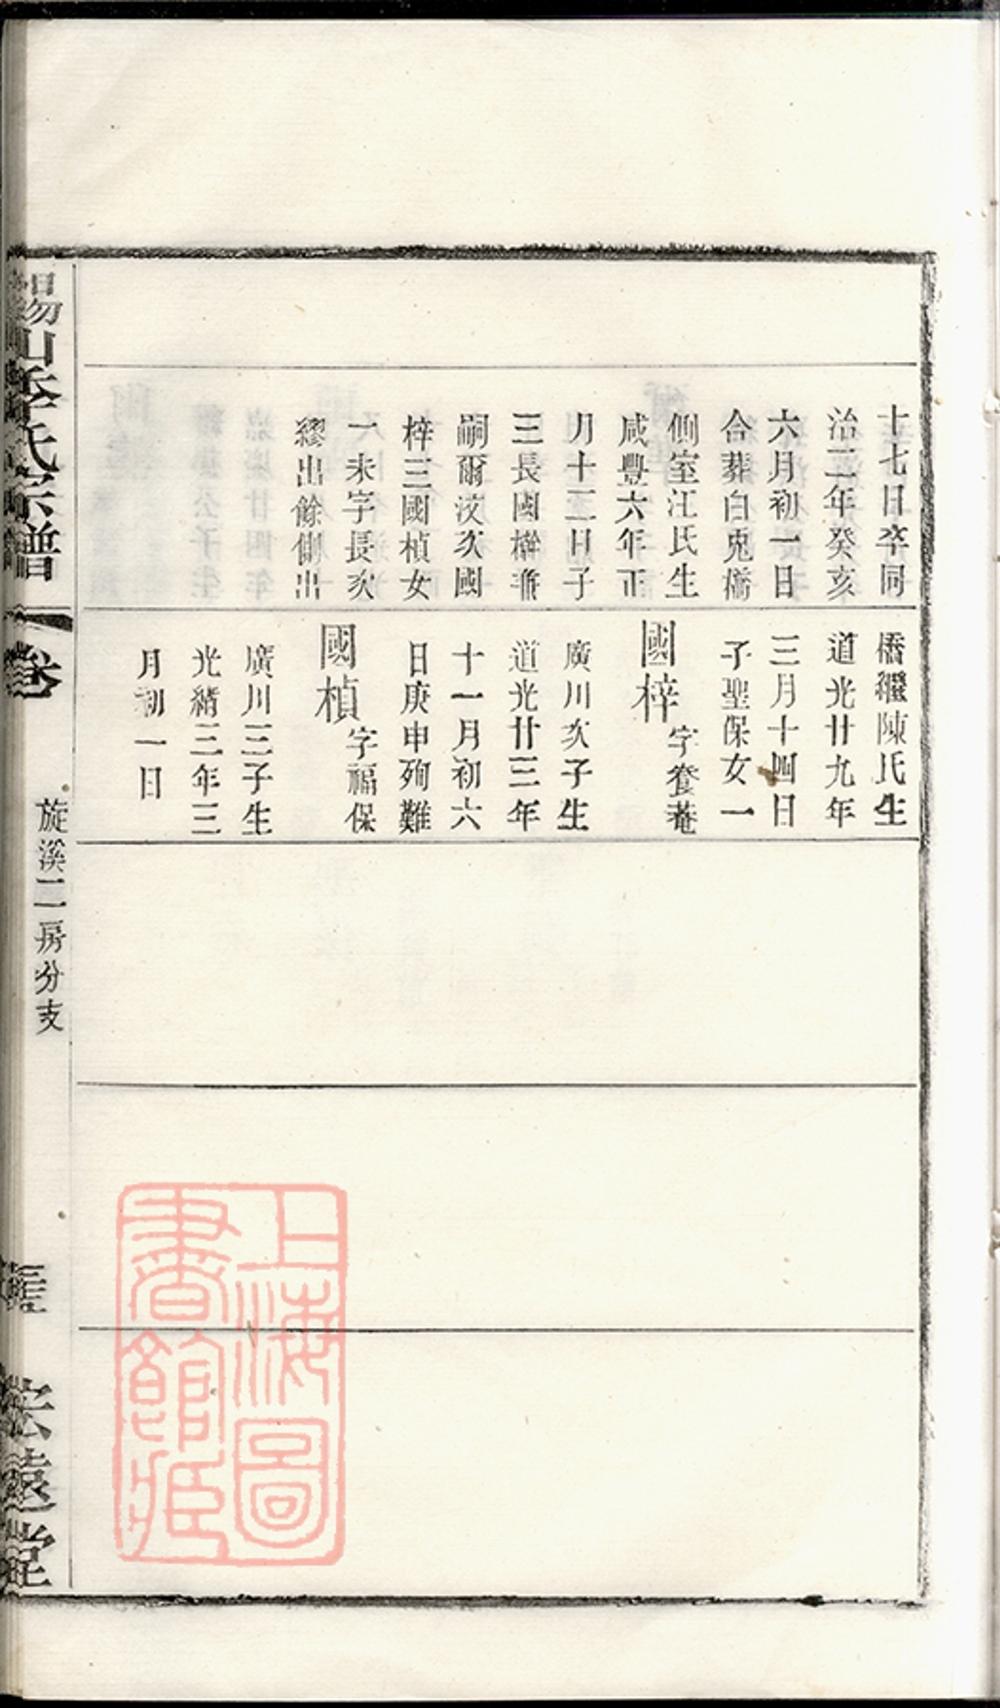 十七日卒同
治二年癸亥
六月初一日
合葬白兎橋
側室江氏生
咸豐六年正
月十二日子
三長國檊兼
嗣爾汶次國
梓三國楨女
一未字長次
繆出餘側出
橋繼陳氏生
道光廿九年
三月十四日
子聖保女一
國梓 字養菴
廣川次子生
道光廿三年
十一月初六
日庚申殉難
國楨 字福保
廣川三子生
光緒三年三
月初一日
錫山李氏宗譜 卷
旋溪二房分支
宏遠堂
上海圖
書館藏